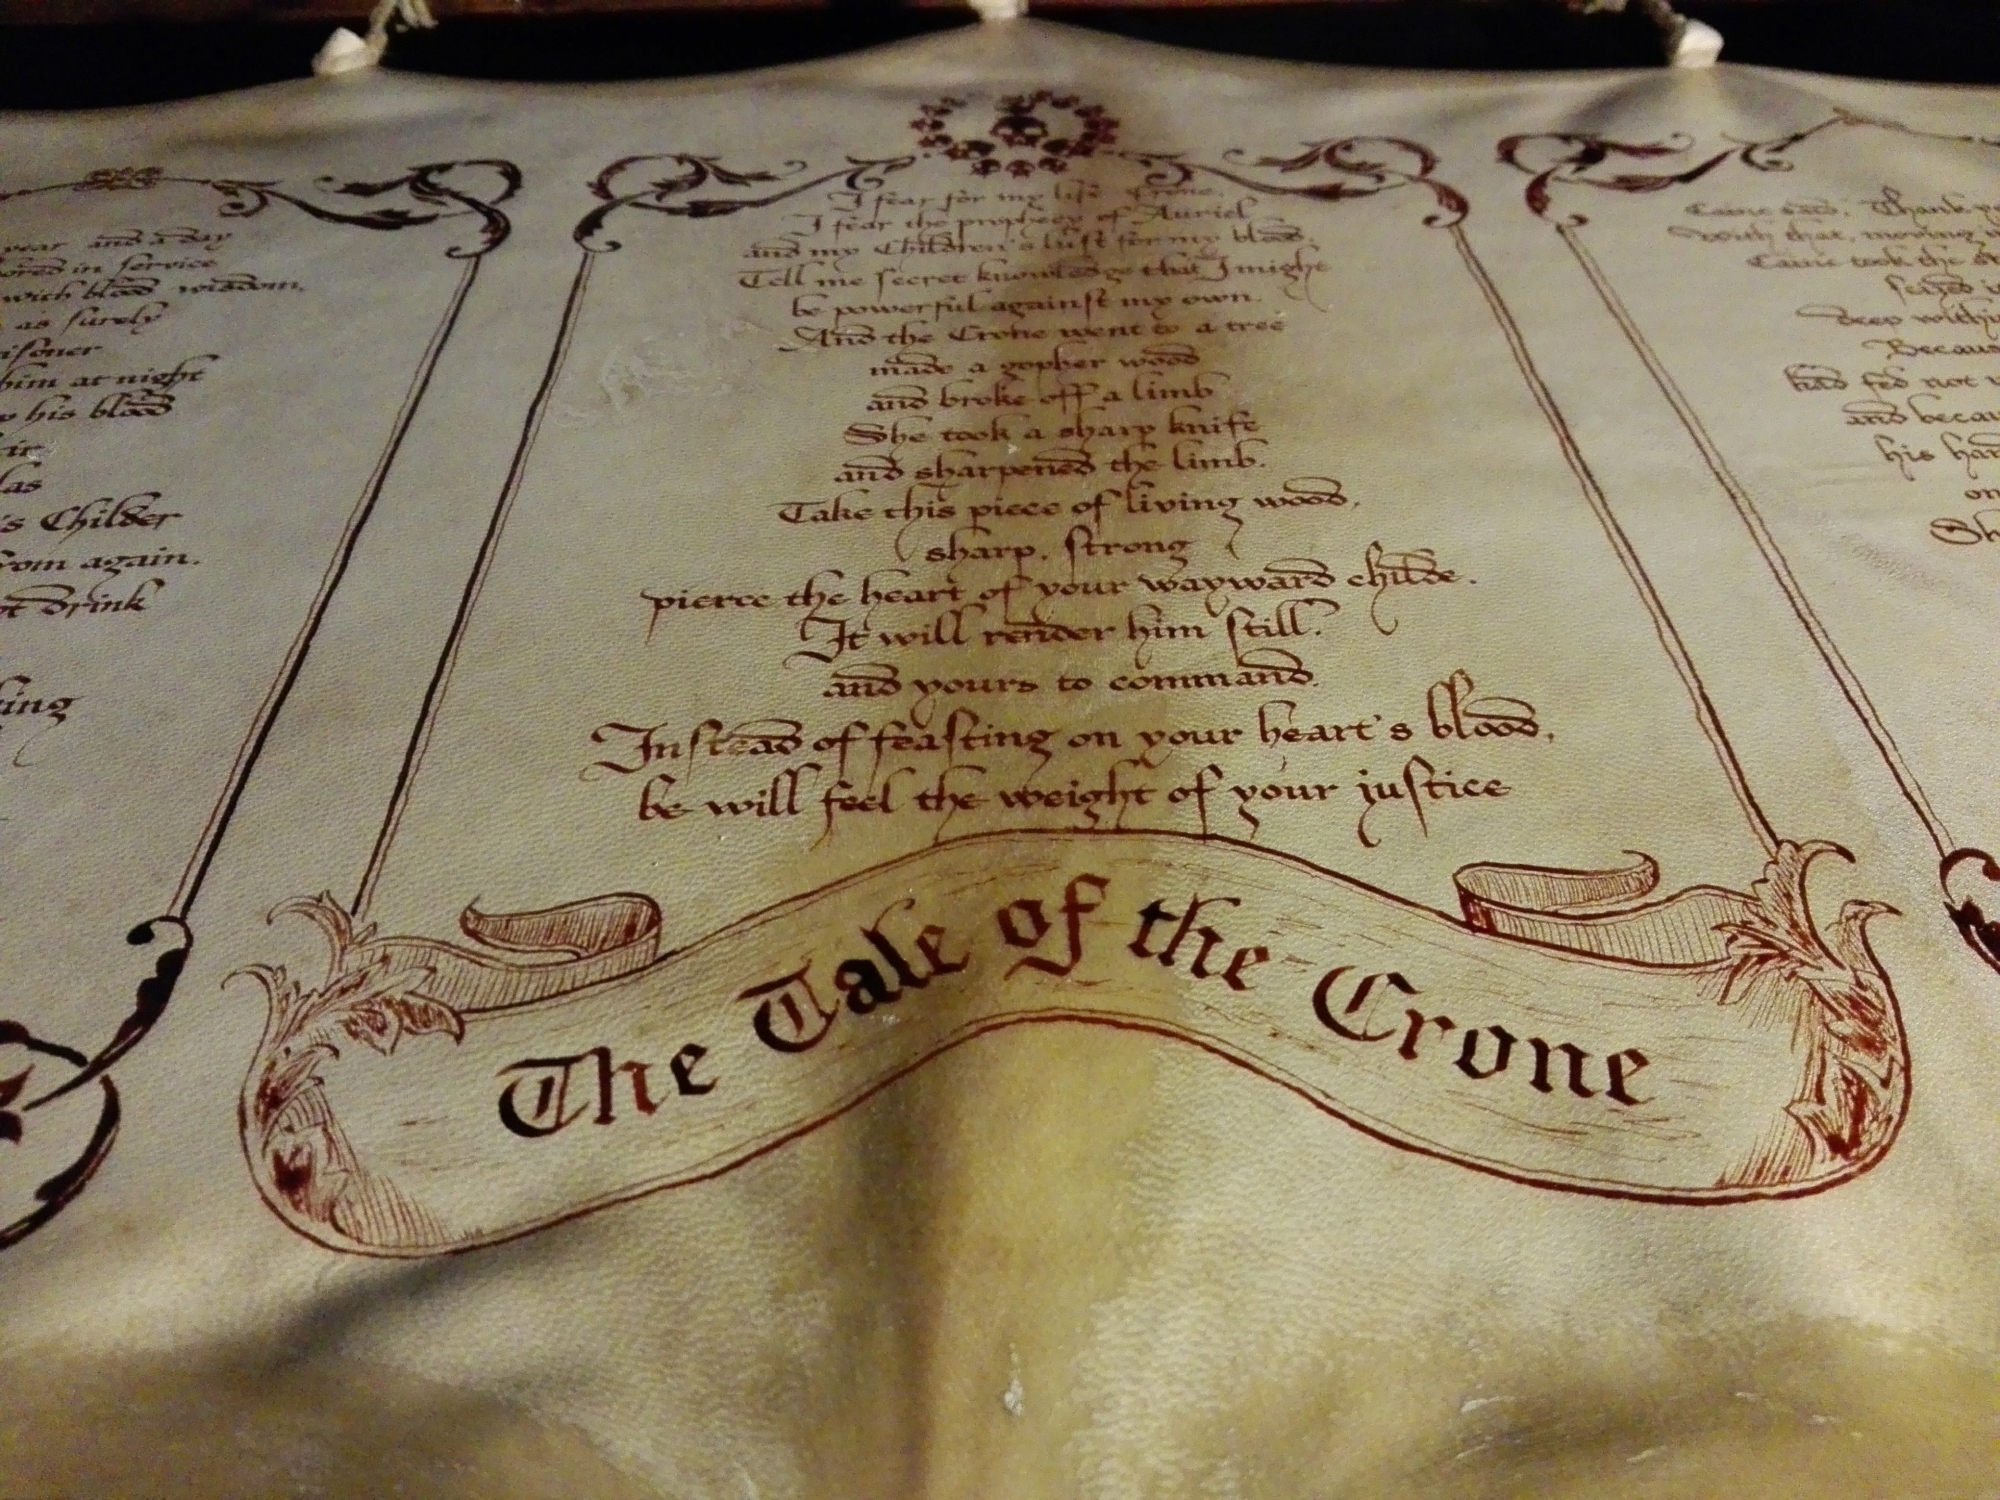 year and a day
in service
with blood wisdom.
as surely
him at night
his blood
Childer
again.
drink
I fear for my life Crone.
I fear the prophecy of Auriel
and my Children's lust for my blood.
Tell me secret knowledge that I might
be powerful against my own.
And the Crone went to a tree
made a gopher wood
and broke off a limb
She took a sharp knife
and sharpened the limb.
Take this piece of living wood,
sharp, strong
pierce the heart of your wayward childe.
It will render him still.
and yours to command.
Instead of feasting on your heart's blood,
he will feel the weight of your justice
The Tale of the Crone
Caine said, Thank
With that, moving
Caine took the
seized
deep within
had fed not
and
his